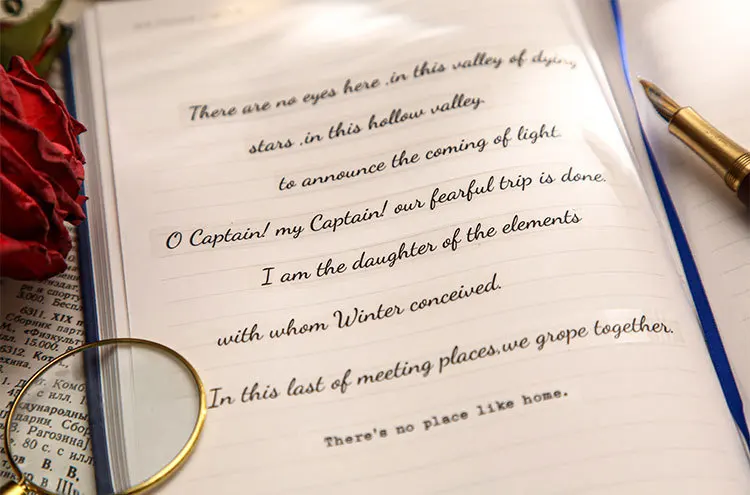 There are no eyes here .in this valley of dying
stars .in this hollow valley.
to announce the coming of light.
O Captain! my Captain! our fearful trip is done.
I am the daughter of the elements
with whom Winter conceived.
In this last of meeting places,we grope together.
There's no place like home.
3.000. Беспл
6311. XIX
Сборник
М., «Физкульт
6312.
1.
с илл.
дународный
парии. Сбор
В. Рагозина]
80 с. с илл
В. В.